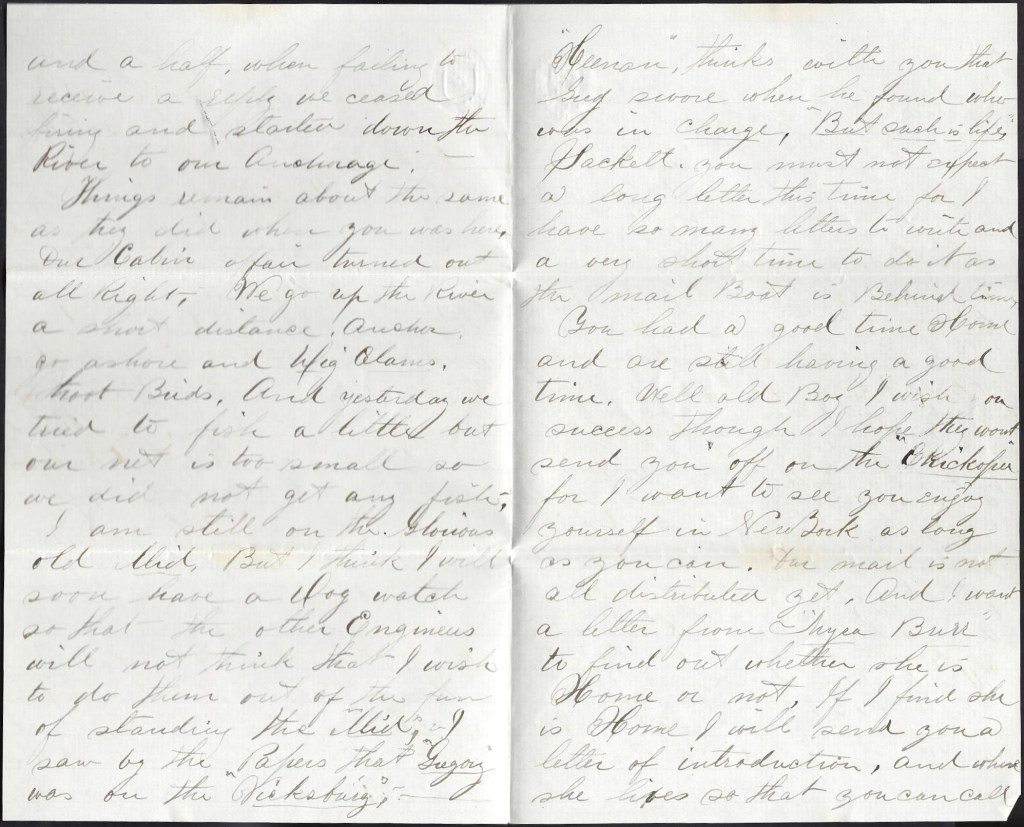 and a half, when failing to
receive a reply we ceased
firing and started down the
River to our Anchorage. —
Things remain about the same
as they did when you was here,
Our Cabin affair turned out
all Right, We go up the River
a short distance, Anchor,
go ashore and Dig Clams,
shoot Birds, And yesterday we
tried to fish a little but
our net is too small so
we did not get any fish,
I am still on the Glorious
old Mid, But I think I will
soon have a Dog watch
so that the other Engineers
will not think that I wish
to do them out of the fun
of standing the "Mid", I
saw by the Papers that "Gregory"
was on the "Vicksburg", —
"Heenan", thinks with you that
Greg swore when he found who
was in charge, "But such is life,"
Sackett. you must not expect
a long letter this time for I
have so many letters to write and
a very short time to do it as
the mail Boat is Behind time,
You had a good time Home
and are still having a good
time. Well old Boy I wish you
success though I hope they wont
send you off on the "Kickapoo"
for I want to see you enjoy
yourself in New York as long
as you can. Our mail is not
all distributed yet, And I want
a letter from Burr"
to find out whether she is
Home or not, If I find she
is Home I will send you a
letter of introduction, and where
she lives so that you can call